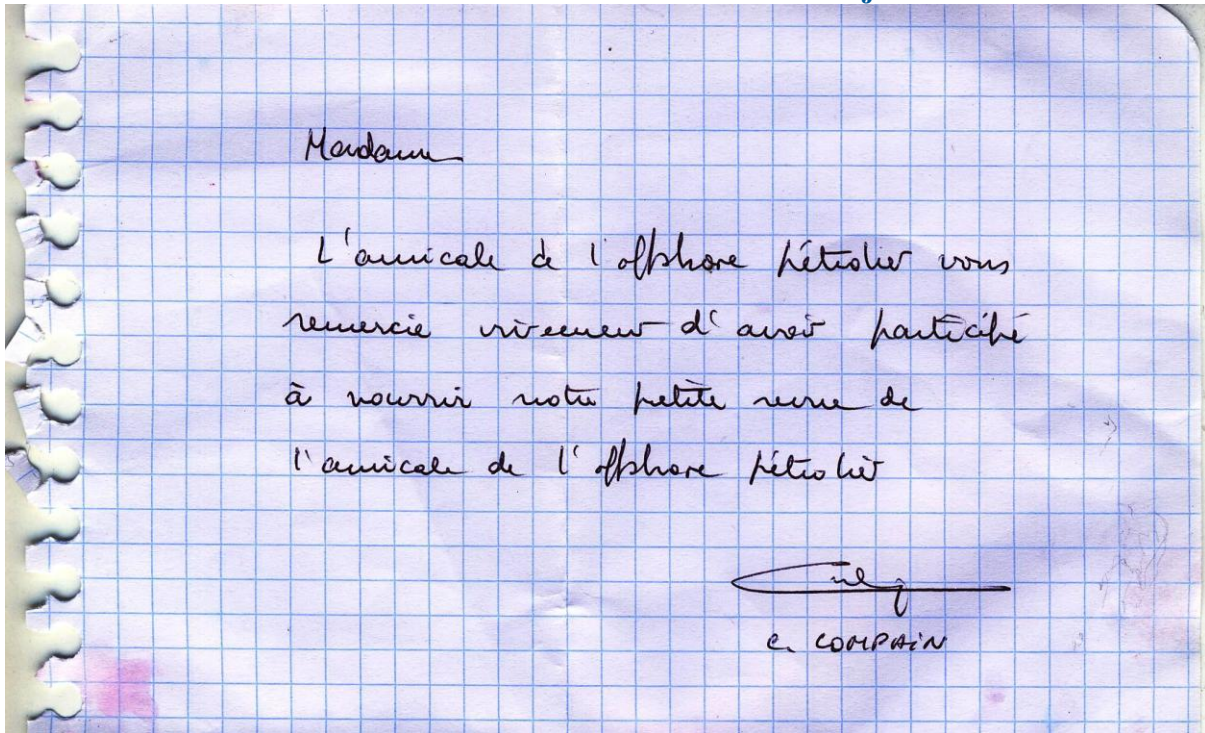 Madame
L'amicale de l'offshore pétrolier vous
remercie vivement d'avoir participé
à nourrir notre petite revue de
l'amicale de l'offshore pétrolier
C. COMPAIN